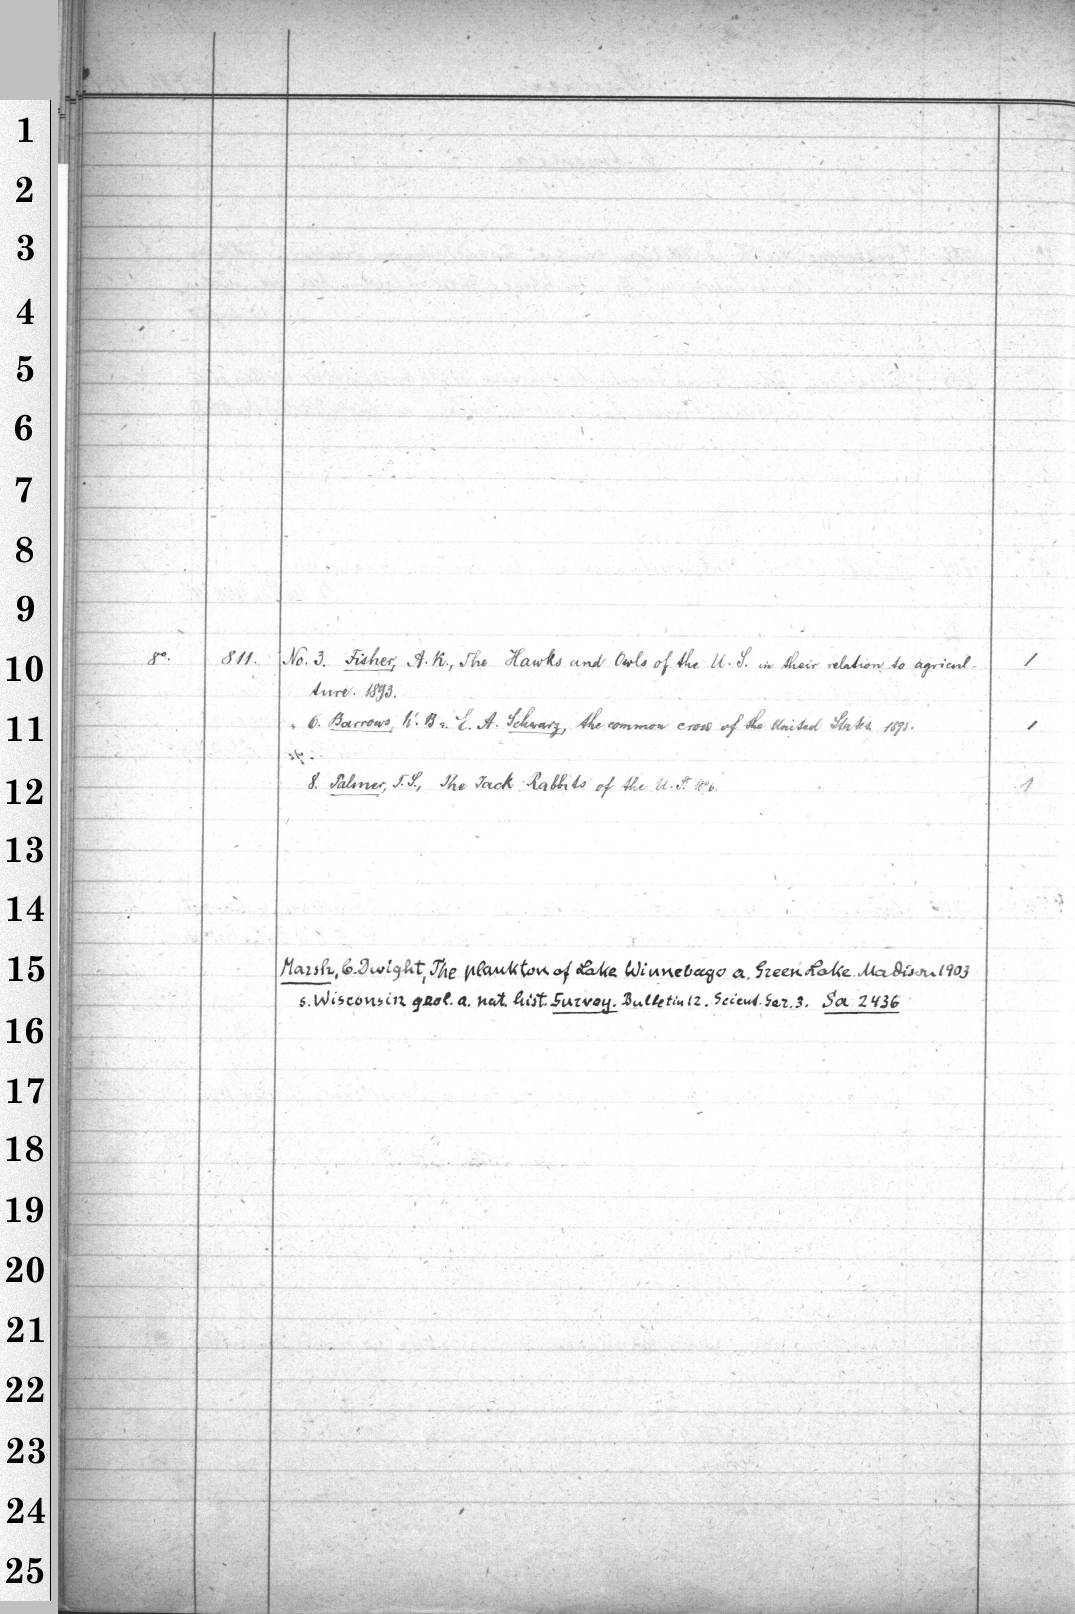 1
2
3
4
5
6
7
8
9
10
8°. 811. No. 3. Fisher, A. K., The Hawks and Owls of the U. S. in their relation to agricul- 1
ture. 1893.
11
" 6. Barrows, W. B. u. E. A. Schwarz, the common crow of the United States 1895. 1
12
8. Palmer, T. S., The Jack Rabbits of the U. S. 1896. 1
13
14
15
Marsh, C. Dwight, The plankton of Lake Winnebago a. Green Lake. Madison 1903
s. Wisconsin geol. a. nat. hist. Survey. Bulletin 12. Scient. Ser. 3. Sa 2436
16
17
18
19
20
21
22
23
24
25